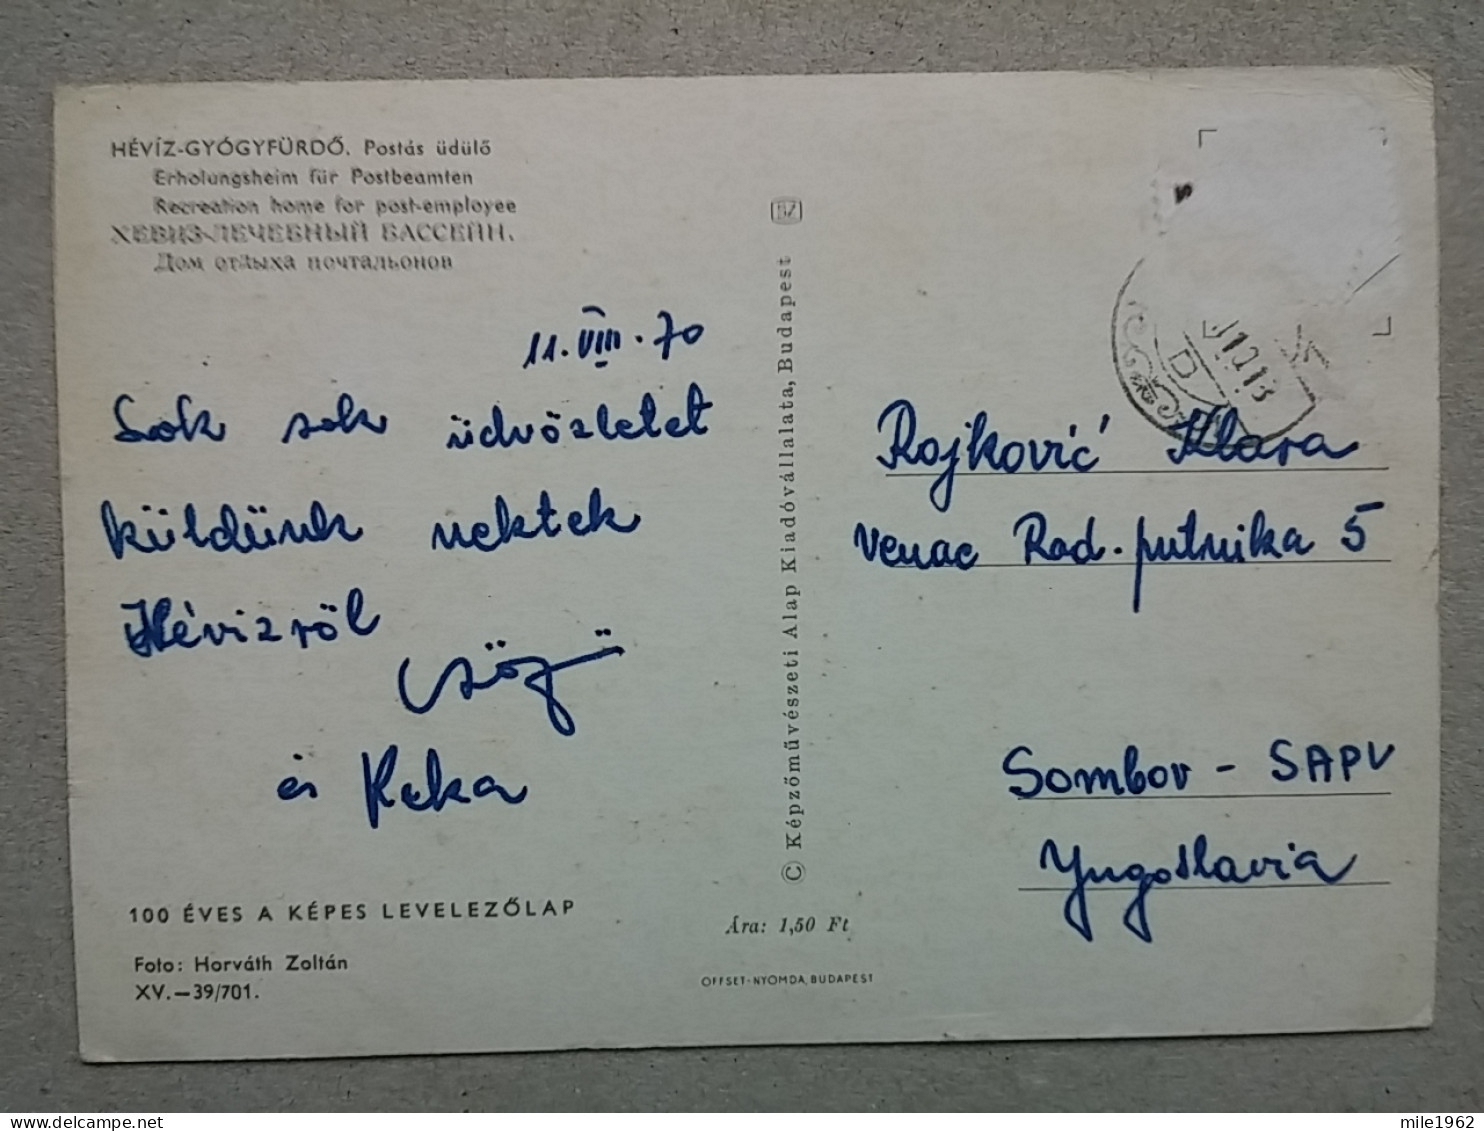 HÉVÍZ-GYÓGYFÜRDŐ. Postás üdülő
Erholungsheim für Postbeamten
Recreation home for post-employee
ХЕВИЗ-ЛЕЧЕБНЫЙ БАССЕЙН.
Дом отдыха почтальонов
11. VIII. 70
Sok sok üdvözletet
küldünk nektek
Hévizről
és Keka
100 ÉVES A KÉPES LEVELEZŐLAP
Foto: Horváth Zoltán
XV.—39/701.
© Képzőművészeti Alap Kiadóvállalata, Budapest
Ára: 1,50 Ft
OFFSET-NYOMDA, BUDAPEST
Rojković Klara
Venac Rad. putnika 5
Sombor - SAPV
Yugoslavia
mile1962